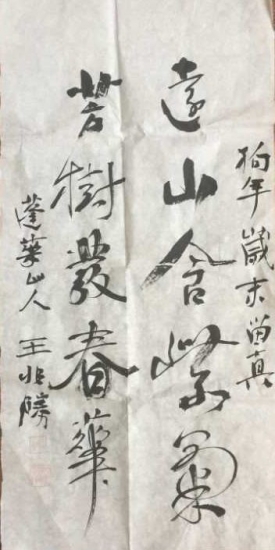 狗年歲末留真
遠山含紫氣
芳樹發春華
蓬華山人 王兆勝